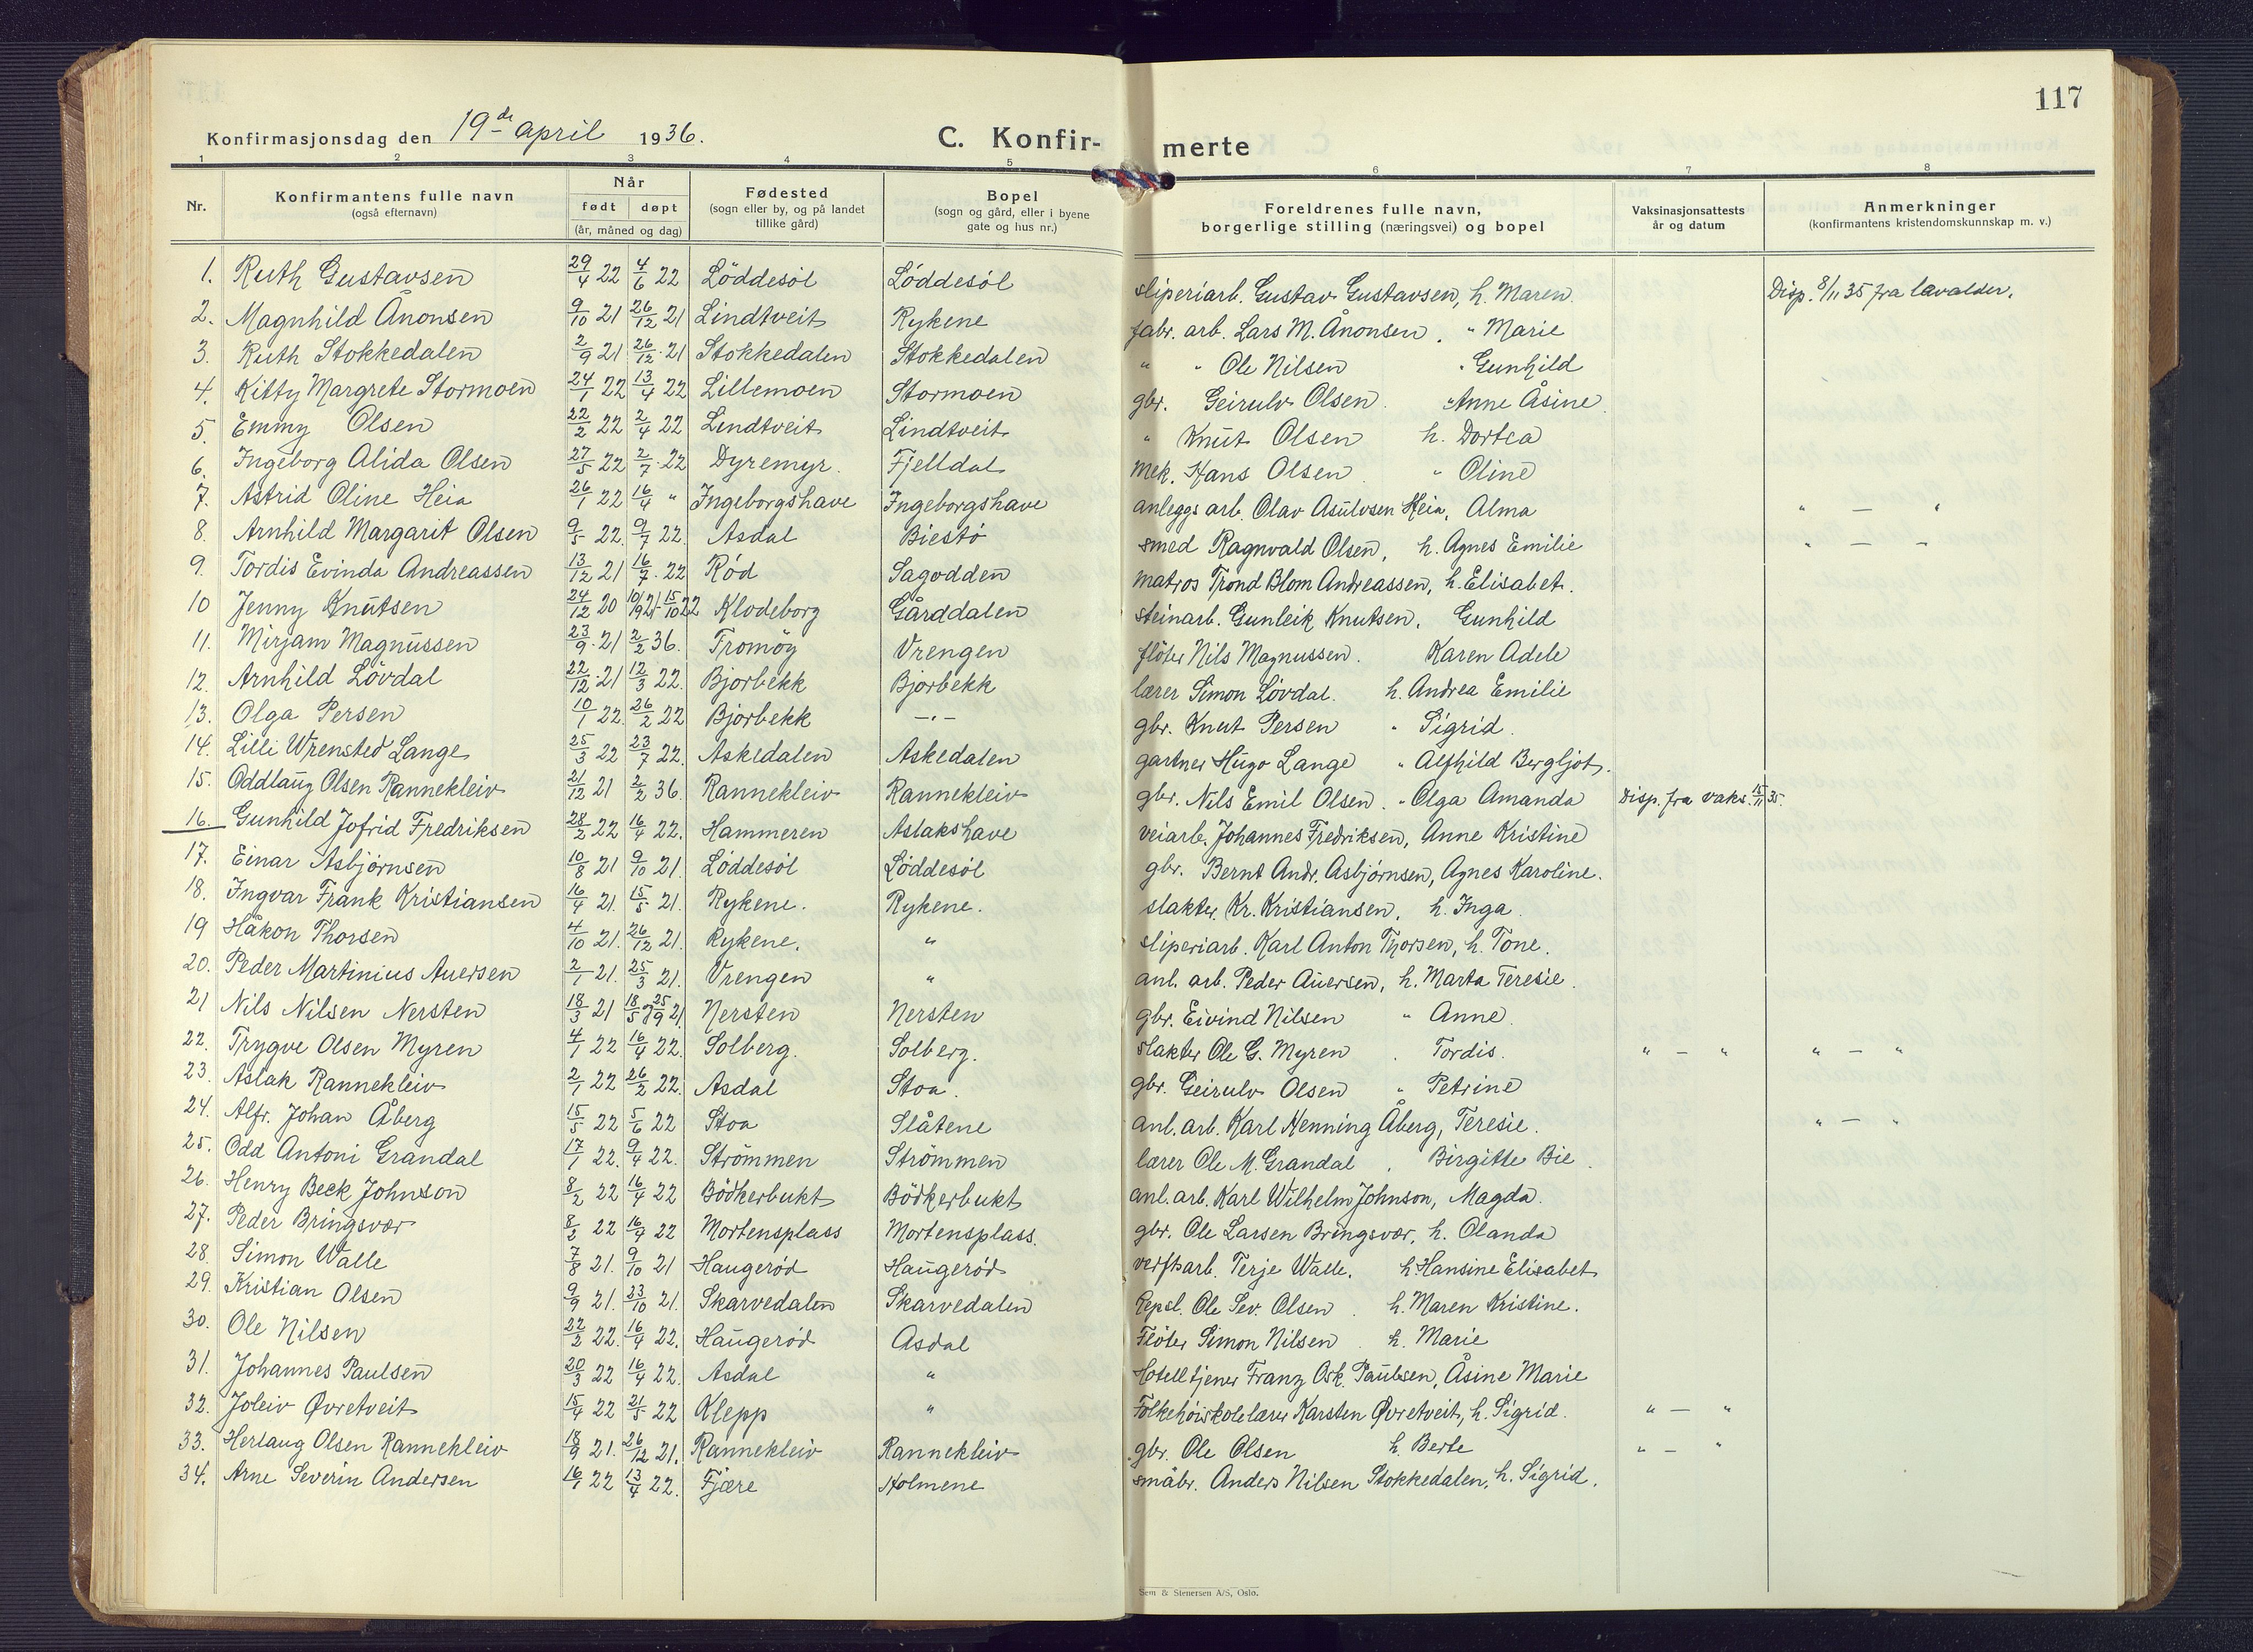 117
Konfirmasjonsdag den 19de april 1936.
C. Konfir-
merte
1 2 3 4 5 6 7 8
Nr. Konfirmantens fulle navn (også efternavn) Når født døpt (år, måned og dag) Fødested (sogn eller by, og på landet tillike gård) Bopel (sogn og gård, eller i byene gate og hus nr.) Foreldrenes fulle navn, borgerlige stilling (næringsvei) og bopel Vaksinasjonsattests år og datum Anmerkninger (konfirmantens kristendomskunnskap m. v.)
1. Ruth Gustavsen 29/4 22 4/6 22 Löddesöl Løddesöl sliperiarb. Gustav Gustavsen, h. Maren. Disp. 8/11 35 fra lavalder.
2. Magnhild Ånonsen 9/10 21 26/12 21 Lindtveit Rykene fabr. arb. Lars M. Ånonsen. " Marie
3. Ruth Stokkedalen 2/9 21 26/12 21 Stokkedalen Stokkedalen " " Ole Nilsen " Gunhild
4. Kitty Margrete Stormoen 24/1 22 13/4 22 Lillemoen Stormoen gbr. Geirulv Olsen. " Anne Åsine.
5. Emmy Olsen 22/2 22 2/4 22 Lindtveit Lindtveit " Knut Olsen h. Dortea
6. Ingeborg Alida Olsen 27/5 22 2/7 22 Dyremyr. Fjelldal mek. Hans Olsen " Oline
7. Astrid Oline Heia 26/1 22 16/4 " Ingeborgshave Ingeborgshave anleggs arb. Olav Asulvsen Heia, Alma " — "
8. Arnhild Margarit Olsen 9/5 22. 9/7 22. Asdal Biestö smed Ragnvald Olsen, h. Agnes Emilie " — "
9. Tordis Evinda Andreassen 13/12 21 16/7 22 Rød Sagodden matros Trond Blom Andreassen, h. Elisabet.
10 Jenny Knutsen 24/12 20 10/19 21 - 15/10 22 Klodeborg Gårddalen steinarb. Gunleik Knutsen. Gunhild
11. Mirjam Magnussen 23/9 21 2/2 36. Tromöy Vrengen flöter Nils Magnussen. Karen Adele
12. Arnhild Lövdal 22/12 21 12/3 22. Bjorbekk Bjorbekk lærer Simon Løvdal. h. Andrea Emilie
13. Olga Persen 10/1 22. 26/2 22 Bjorbekk —"— gbr. Knut Persen " Sigrid.
14. Lilli Wrensted Lange 25/3 22 23/7 22. Askedalen Askedalen gartner Hugo Lange " Alfhild Bergljot.
15. Oddlaug Olsen Rannekleiv 21/12 21 2/2 36. Rannekleiv Rannekleiv gbr. Nils Emil Olsen. " Olga Amanda Disp. fra vaks. 15/11 35.
16. Gunhild Jofrid Fredriksen 28/2 22 16/4 22. Hammeren Aslakshave veiarb. Johannes Fredriksen, Anne Kristine
17. Einar Asbjørnsen 10/8 21 9/10 21. Løddesöl Løddesöl gbr. Bernt Andr. Asbjørnsen, Agnes Karoline.
18. Ingvar Frank Kristiansen 16/4 21. 15/5 21. Rykene. Rykene. slakter. Kr. Kristiansen, h. Inga.
19 Håkon Thorsen 4/10 21. 26/12 21. Rykene. " sliperiarb. Karl Anton Thorsen, h. Tone.
20. Peder Martinius Auersen 2/1 21. 25/3 21. Vrengen " anl. arb. Peder Auersen, h. Marta Teresie.
21 Nils Nilsen Nersten 18/3 21 18/5 og 25/9 21. Nersten Nersten gbr. Eivind Nilsen " Anne.
22. Trygve Olsen Myren 4/1 22 16/4 22. Solberg. Solberg. slakter Ole G. Myren . Tordis. " — " " — "
23. Aslak Rannekleiv 2/1 22 26/2 22. Asdal Stoa. gbr. Geirulv Olsen " Petrine
24. Alfr. Johan Åberg 15/5 22 5/6 22 Stoa Slåtene anl. arb. Karl Henning Åberg, Teresie. " — "
25. Odd Antoni Grandal 17/1 22. 9/4 22. Strömmen Strömmen lærer Ole M. Grandal . Birgitte Bie.
26. Henry Beck Johnson 8/2 22 16/4 22 Bödkerbukt Bödkerbukt anl. arb. Karl Wilhelm Johnson, Magda.
27. Peder Bringsvær 8/2 22 16/4 22 Mortensplass Mortensplass. gbr. Ole Larsen Bringsvær, h. Olanda
28. Simon Walle 7/8 21. 9/10 21 Haugerød Haugerød verftsarb. Terje Walle. h. Hansine Elisabet
29. Kristian Olsen 9/9 21. 23/10 21. Skarvedalen Skarvedalen Repsl. Ole Sev. Olsen. h. Maren Kristine.
30. Ole Nilsen 22/2 22. 16/4 22. Haugerød Asdal Flöter Simon Nilsen. h. Marie
31. Johannes Paulsen 20/3 22 16/4 22. Asdal " Hotelltjener Franz Osk. Paulsen, Åsine Marie
32. Joleiv Øvretveit 15/4 22 21/5 22 Klepp " Folkehöiskolelærer Karsten Øvretveit, h. Sigrid. " — "
33. Herlaug Olsen Rannekleiv 18/9 21. 26/12 21. Rannekleiv Rannekleiv gbr. Ole Olsen h. Berte " — "
34. Arne Severin Andersen 16/1 22 13/4 22. Fjære Holmene småbr. Anders Nilsen Stokkedalen, h. Sigrid.
Sem & Stenersen A/S, Oslo.